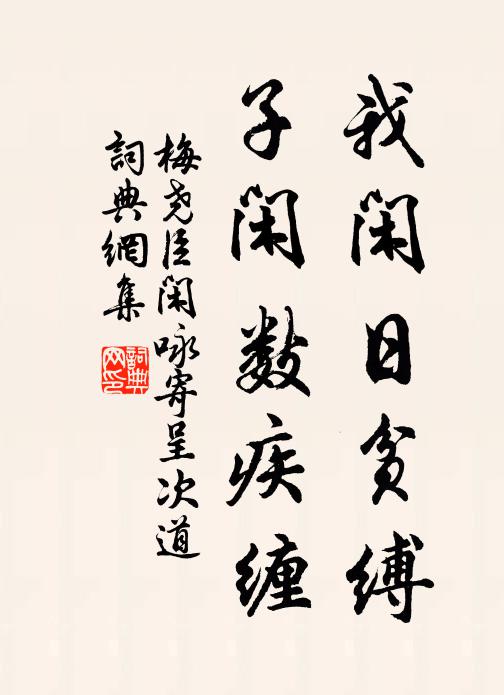 我闲日贫缚
子闲数疾缠
梅尧臣闲咏寄呈次道
詞典網集
詞典网印